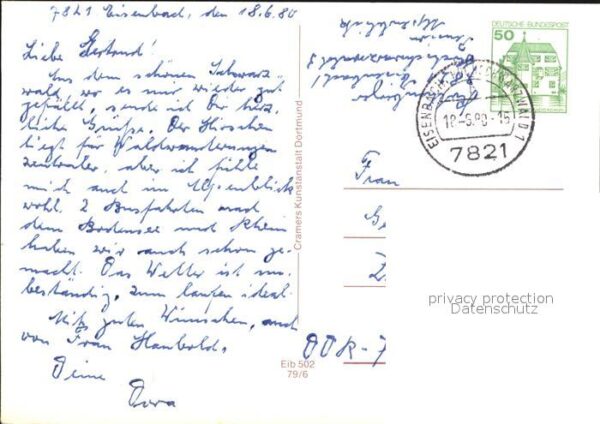 7821 Eisenbach, den 18.6.80
Liebe Gertrud!
Aus dem schönen Schwarz-
wald, wo es mir wieder gut
gefällt, sende ich Dir herz-
liche Grüße. Der Hirschen
liegt für Waldwanderungen
zentraler, aber ich fühle
mich auch im Augenblick
wohl. 2 Busfahrten nach
dem Bodensee und Rhein
haben wir auch schon ge-
macht. Das Wetter ist un-
beständig, zum laufen ideal.
Mit guten Wünschen, auch
von Frau Haubold.
Deine
Dora
Cramers Kunstanstalt Dortmund
Eib 502
79/6
DEUTSCHE BUNDESPOST
50
EISENBACH HOCHSCHWARZWALD 1
18.-6.80-15
7821
Frau
DDR-7
privacy protection
Datenschutz